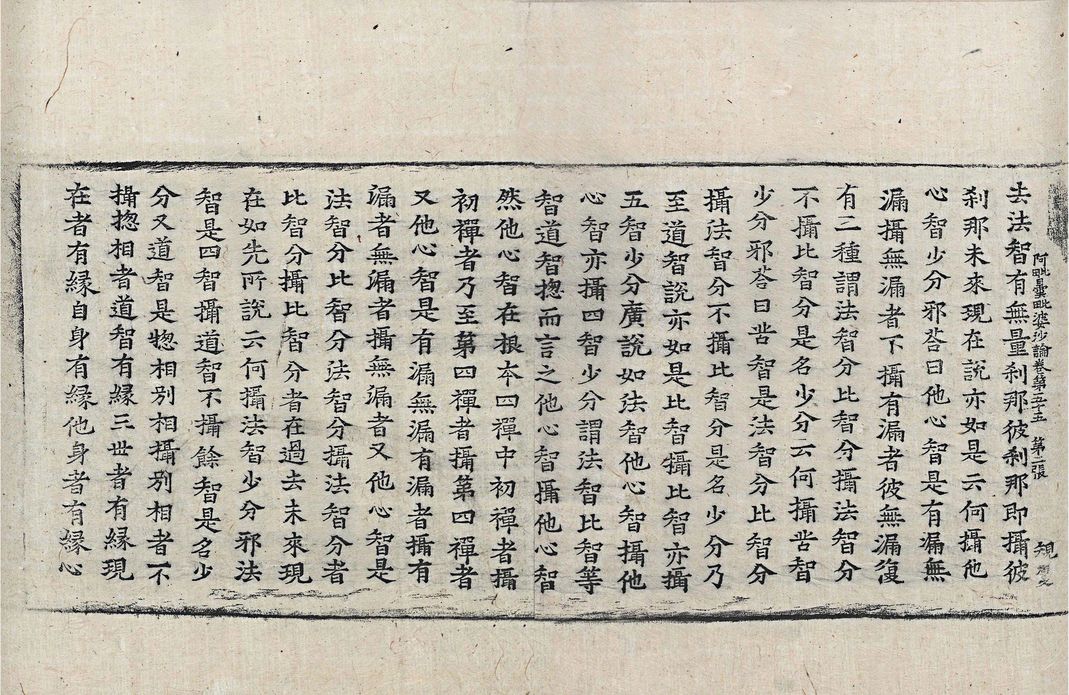 阿毗曇毗婆沙論卷第五十五 第二張
去法智有無量剎那彼剎那即攝彼
剎那未來現在說亦如是云何攝他
心智少分邪荅曰他心智是有漏無
漏攝無漏者不攝有漏者彼無漏復
有二種謂法智分比智分攝法智分
不攝比智分是名少分云何攝苦智
少分邪荅曰苦智是法智分比智分
攝法智分不攝比智分是名少分乃
至道智說亦如是比智攝比智亦攝
五智少分廣說如法智他心智攝他
心智亦攝四智少分謂法智比智等
智道智揔而言之他心智攝他心智
然他心智在根本四禪中初禪者攝
初禪者乃至第四禪者攝第四禪者
又他心智是有漏無漏有漏者攝有
漏者無漏者攝無漏者又他心智是
法智分比智分法智分攝法智分者
比智分攝比智分者在過去未來現
在如先所說云何攝法智少分邪法
智是四智攝道智不攝餘智是名少
分又道智是惣相別相攝別相者不
攝揔相者道智有緣三世者有緣現
在者有緣自身有緣他身者有緣心